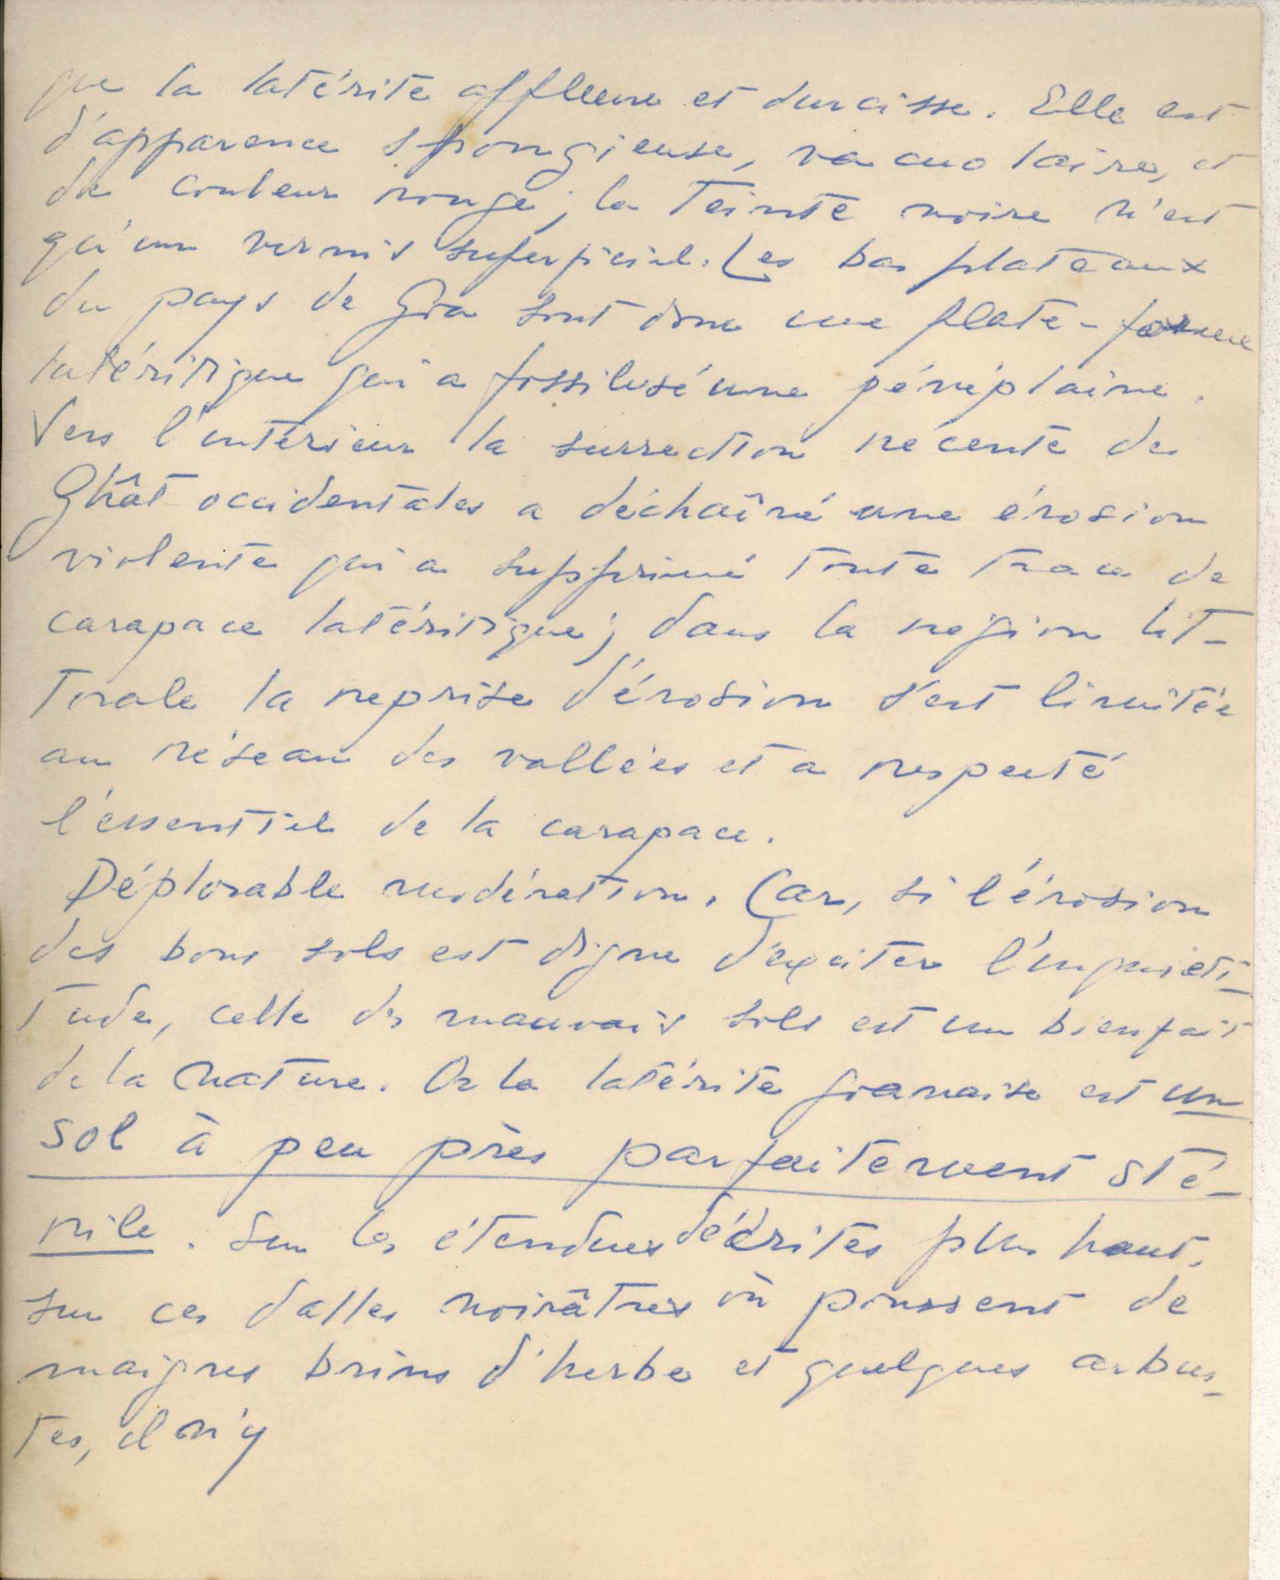 que la latérite affleure et durcisse. Elle est
d'apparence spongieuse, vacuolaire, et
de couleur rouge ; la teinte noire n'est
qu'un vernis superficiel. Les bas plateaux
du pays de Goa sont donc une plate-forme
latéritique qui a fossilisé une pénéplaine.
Vers l'intérieur la surrection récente des
Ghât occidentales a déchaîné une érosion
violente qui a supprimé toute trace de
carapace latéritique ; dans la région lit-
torale la reprise d'érosion s'est limitée
au réseau des vallées et a respecté
l'essentiel de la carapace.
Déplorable modération. Car, si l'érosion
des bons sols est digne d'exciter l'inquiéti-
tude, celle des mauvais sols est un bienfait
de la nature. Or la latérite goanaise est un
sol à peu près parfaitement sté-
rile. Sur les étendues décrites plus haut,
sur ces dalles noirâtres où poussent de
maigres brins d'herbe et quelques arbus-
tes, il n'y